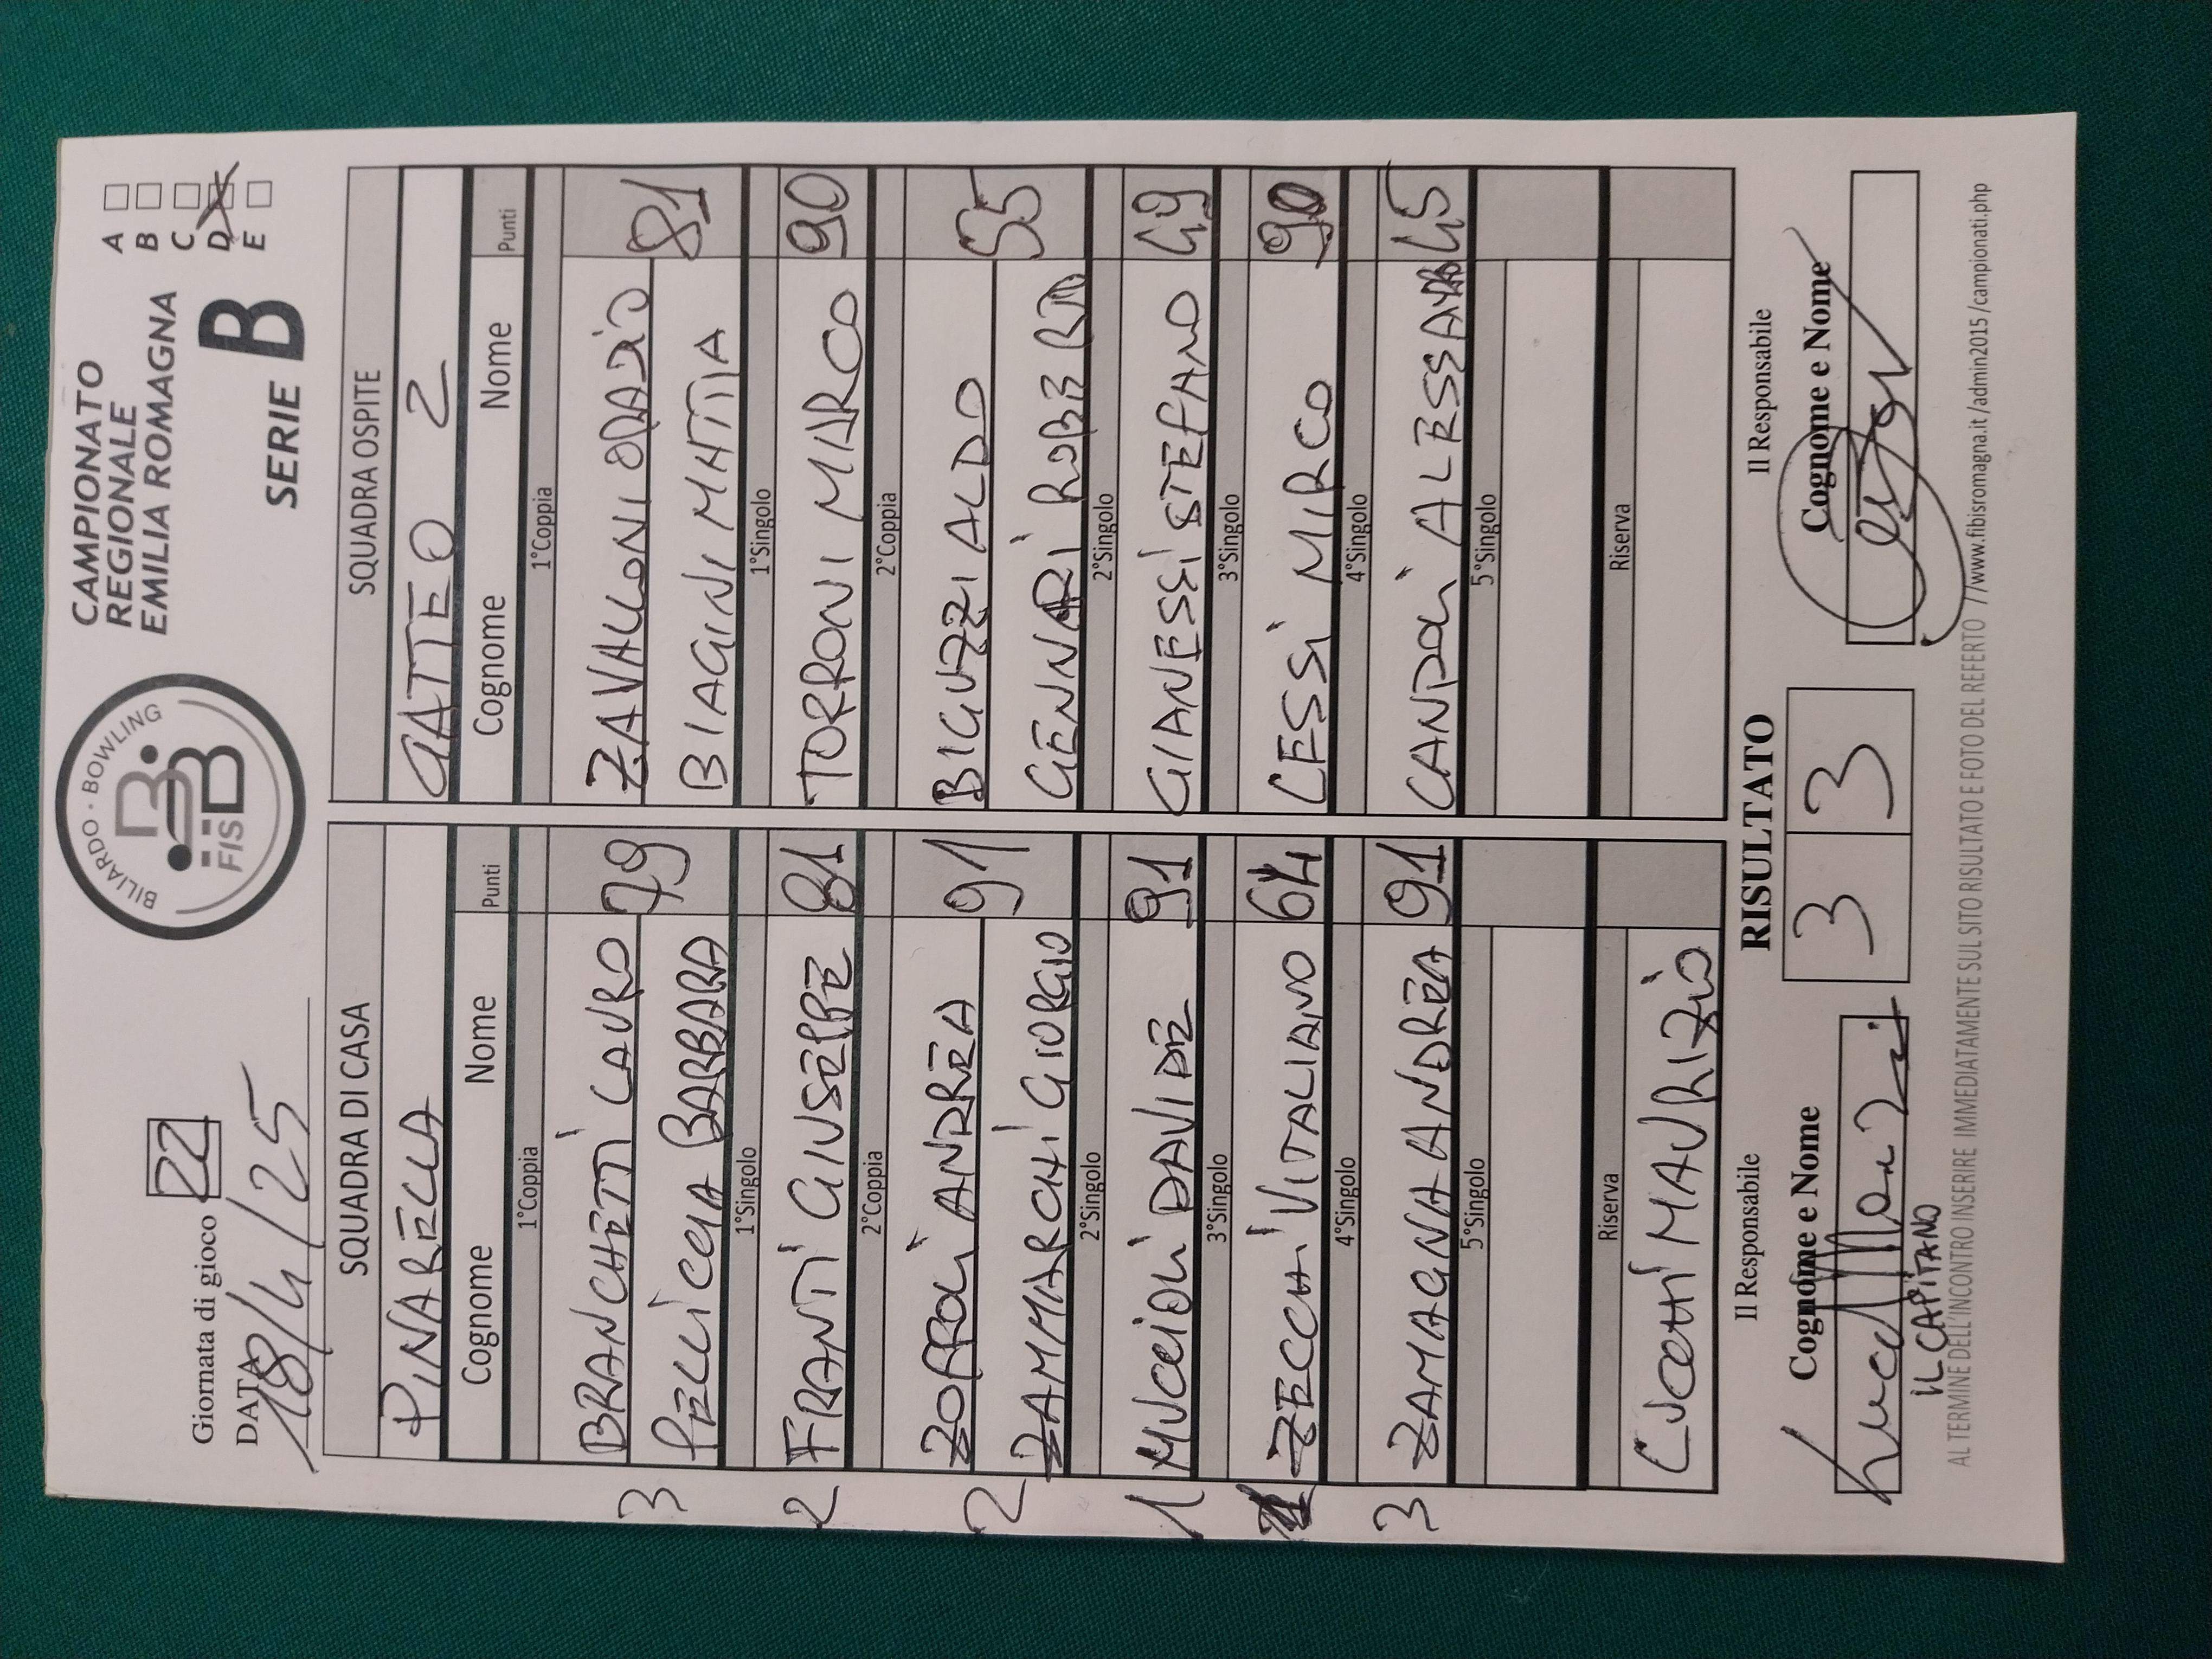 Giornata di gioco 22
DATA 18/4/25
BILIARDO · BOWLING
FISBB
CAMPIONATO
REGIONALE
EMILIA ROMAGNA
SERIE B
A
B
C
D
E
SQUADRA DI CASA
PINARELLA
Cognome Nome Punti
1°Coppia
BRANCHETTI LAURO
3 79
PELLICCIA BARBARA
1°Singolo
2 FRANTI GIUSEPPE 81
2°Coppia
ZOFFOLI ANDREA
2 91
ZAMMARCHI GIORGIO
2°Singolo
1 MUCCIOLI DAVIDE 91
3°Singolo
ZECCHI VITALIANO 64
4°Singolo
3 ZAMAGNA ANDREA 91
5°Singolo
Riserva
CUCCHI MAURIZIO
SQUADRA OSPITE
GATTEO 2
Cognome Nome Punti
1°Coppia
ZAVALLONI ORAZIO
81
BIAGINI MATTIA
1°Singolo
TORRONI MARCO 90
2°Coppia
BIGUZZI ALDO
55
GENNARI ROBERTO
2°Singolo
GIANESSI STEFANO 49
3°Singolo
CESSI MIRCO 90
4°Singolo
CANDOLI ALESSANDRO 45
5°Singolo
Riserva
Il Responsabile
Cognome e Nome
IL CAPITANO
RISULTATO
3 3
Il Responsabile
Cognome e Nome
AL TERMINE DELL'INCONTRO INSERIRE IMMEDIATAMENTE SUL SITO RISULTATO E FOTO DEL REFERTO //www.fibisromagna.it /admin2015 /campionati.php